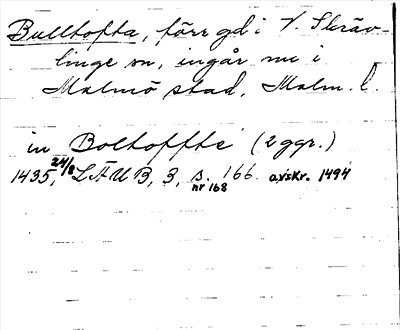 Bulltofta, förr gd i V. Skräv-
linge sn, ingår nu i
Malmö stad, Malm. l.
in Boltoffte (2 ggr.)
1435, 24/8 LÄUB, 3, s. 166 avskr. 1494
nr 168